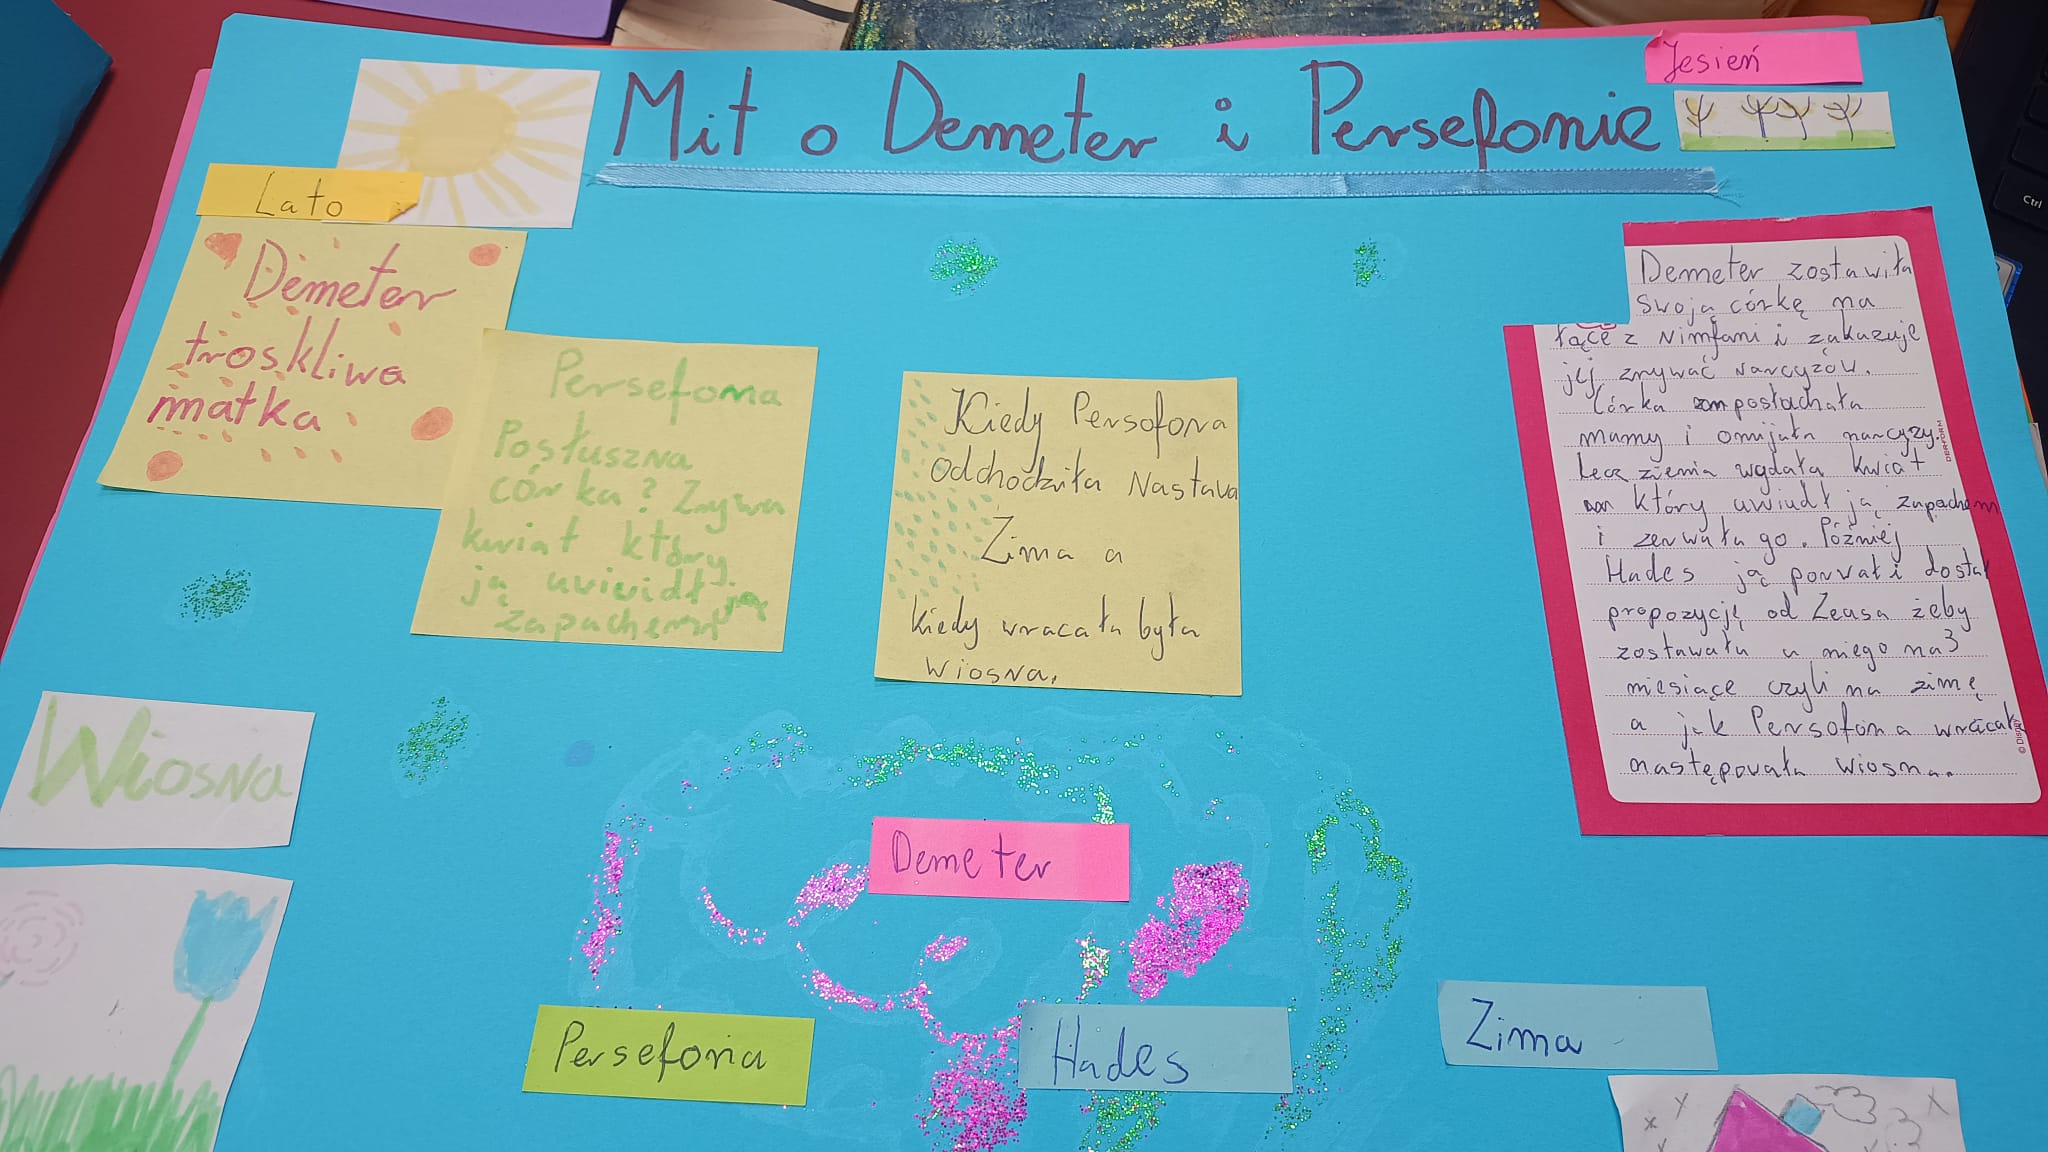 Mit o Demeter i Persefonie
Jesień
Lato
Demeter
troskliwa
matka
Persefona
Posłuszna
córka? Zrywa
kwiat który
ją uwiudł
zapachem
Kiedy Persofona
odchodziła Nastava
Zima a
kiedy wracała była
wiosna.
Demeter zostawiła
swoją córkę na
łące z Nimfami i zakazuje
jej zrywać Narcyzów.
Córka posłuchała
mamy i omijała narcyzy.
Lecz ziemia wydała kwiat
który uwiudł ją zapachem
i zerwała go. Później
Hades ją porwał i dostał
propozycję od Zeusa żeby
zostawała u niego na 3
miesiące czyli na zimę
a jak Persofona wracał
następowała wiosna.
DERFORM
© Disney
Wiosna
Demeter
Persefona
Hades
Zima
Ctrl